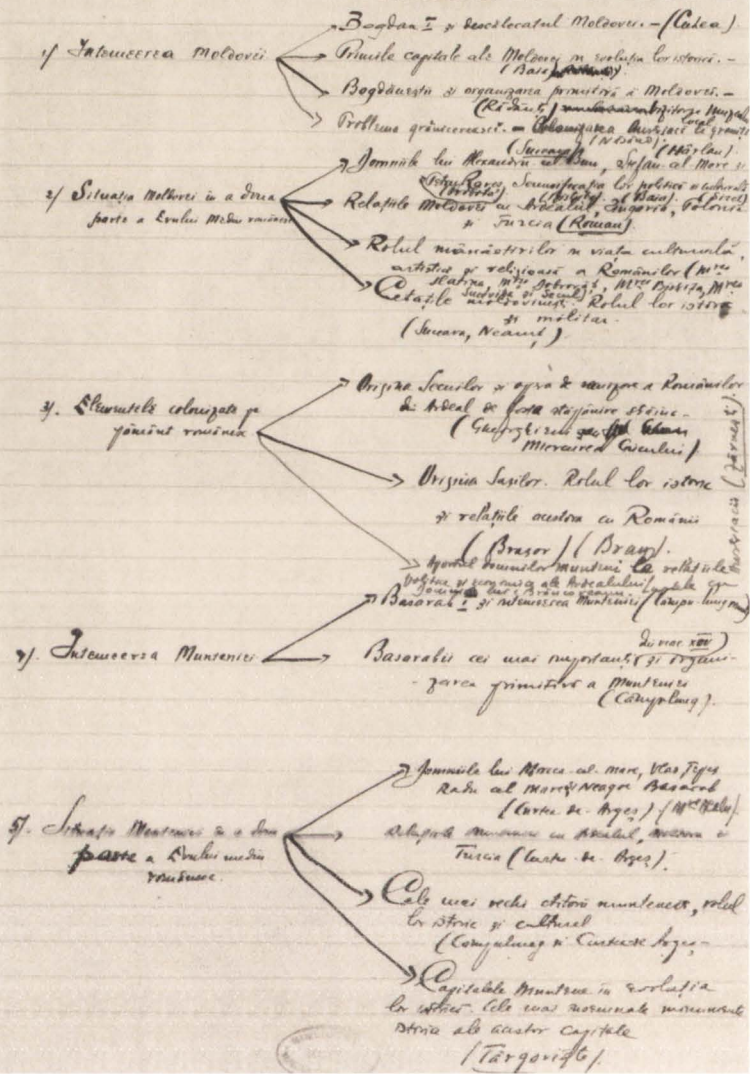 Bogdan I și descălecatul Moldovei. – (Cuhea)
1/ Intemeerea Moldovei
Primele capitale ale Moldovei în evoluția lor istorică. –
(Baia
Bogdăneștii și organizarea primitivă a Moldovei. –
(Rădăuți)
Problema grănicerească. – Colonizarea
local
(Suceava) (Năsăud). (Hârlău).
Domniile lui Alexandru cel Bun, Ștefan cel Mare și
2/ Situația Moldovei în a doua
parte a Evului Mediu românesc
Petru Rareș. Semnificația lor politică și culturală
(Baia)
Relațiile Moldovei cu Ardealul, Ungaria, Polonia
și Turcia (Roman).
Rolul mănăstirilor în viața culturală,
artistică și religioasă a Românilor (M-rea
Slatina, M-rea Dobrovăț, M-rea Bistrița, M-rea
Sucevița și Secul).
Cetățile moldovenești. Rolul lor istoric
și militar.
(Suceava, Neamț).
3/. Elementele colonizate pe
pământ românesc
Origina Secuilor și opera de a Românilor
din Ardeal de sub stăpânire străină. –
(Gheorgheni
Miercurea Ciucului)
Origina Sașilor. Rolul lor istoric
și relațiile acestora cu Românii
(Brașor) (Bran).
(Zărnești).
Aportul domnilor munteni la relațiile
politice și economice ale Ardealului
4/. Intemeerea Munteniei
Basarab I și intemeerea Munteniei (Câmpu-lung
din veac XIV)
Basarabii cei mai importanți și organi-
-zarea primitivă a Munteniei
(Câmpulung).
5/. Situația Munteniei în a doua
parte a Evului mediu
românesc.
Domniile lui Mircea cel mare, Vlad Țepeș
Radu cel Mare și Neagoe Basarab
(Curtea de Argeș)
Relațiile Munteniei cu Ardealul, Moldova și
Turcia (Curtea de Argeș).
Cele mai vechi ctitorii muntenești, rolul
lor istoric și cultural
(Câmpulung și Curtea de Argeș –
Capitalele Muntene în evoluția
lor istorică. Cele mai însemnate monumente
istorice ale acestor capitale
(Târgoviște).